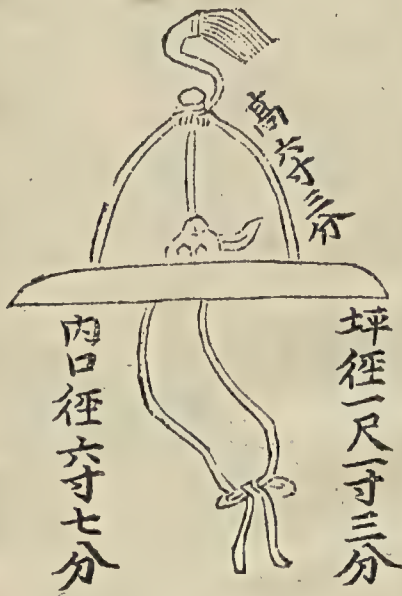 高六寸三分
坪徑一尺一寸三分
內口徑六寸七分